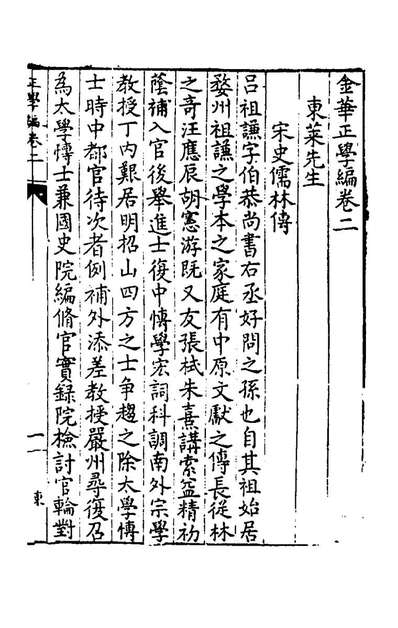 金華正學編卷二
東萊先生
宋史儒林傳
呂祖謙字伯恭尚書右丞好問之孫也自其祖始居
婺州祖謙之學本之家庭有中原文獻之傳長從林
之奇汪應辰胡憲游旣又友張栻朱熹講索益精初
蔭補入官後舉進士復中博學宏詞科調南外宗學
教授丁內艱居明招山四方之士爭趨之除太學博
士時中都官待次者例補外添差教授嚴州尋復召
為太學博士兼國史院編脩官實録院檢討官輪對
正學編卷二
一
東